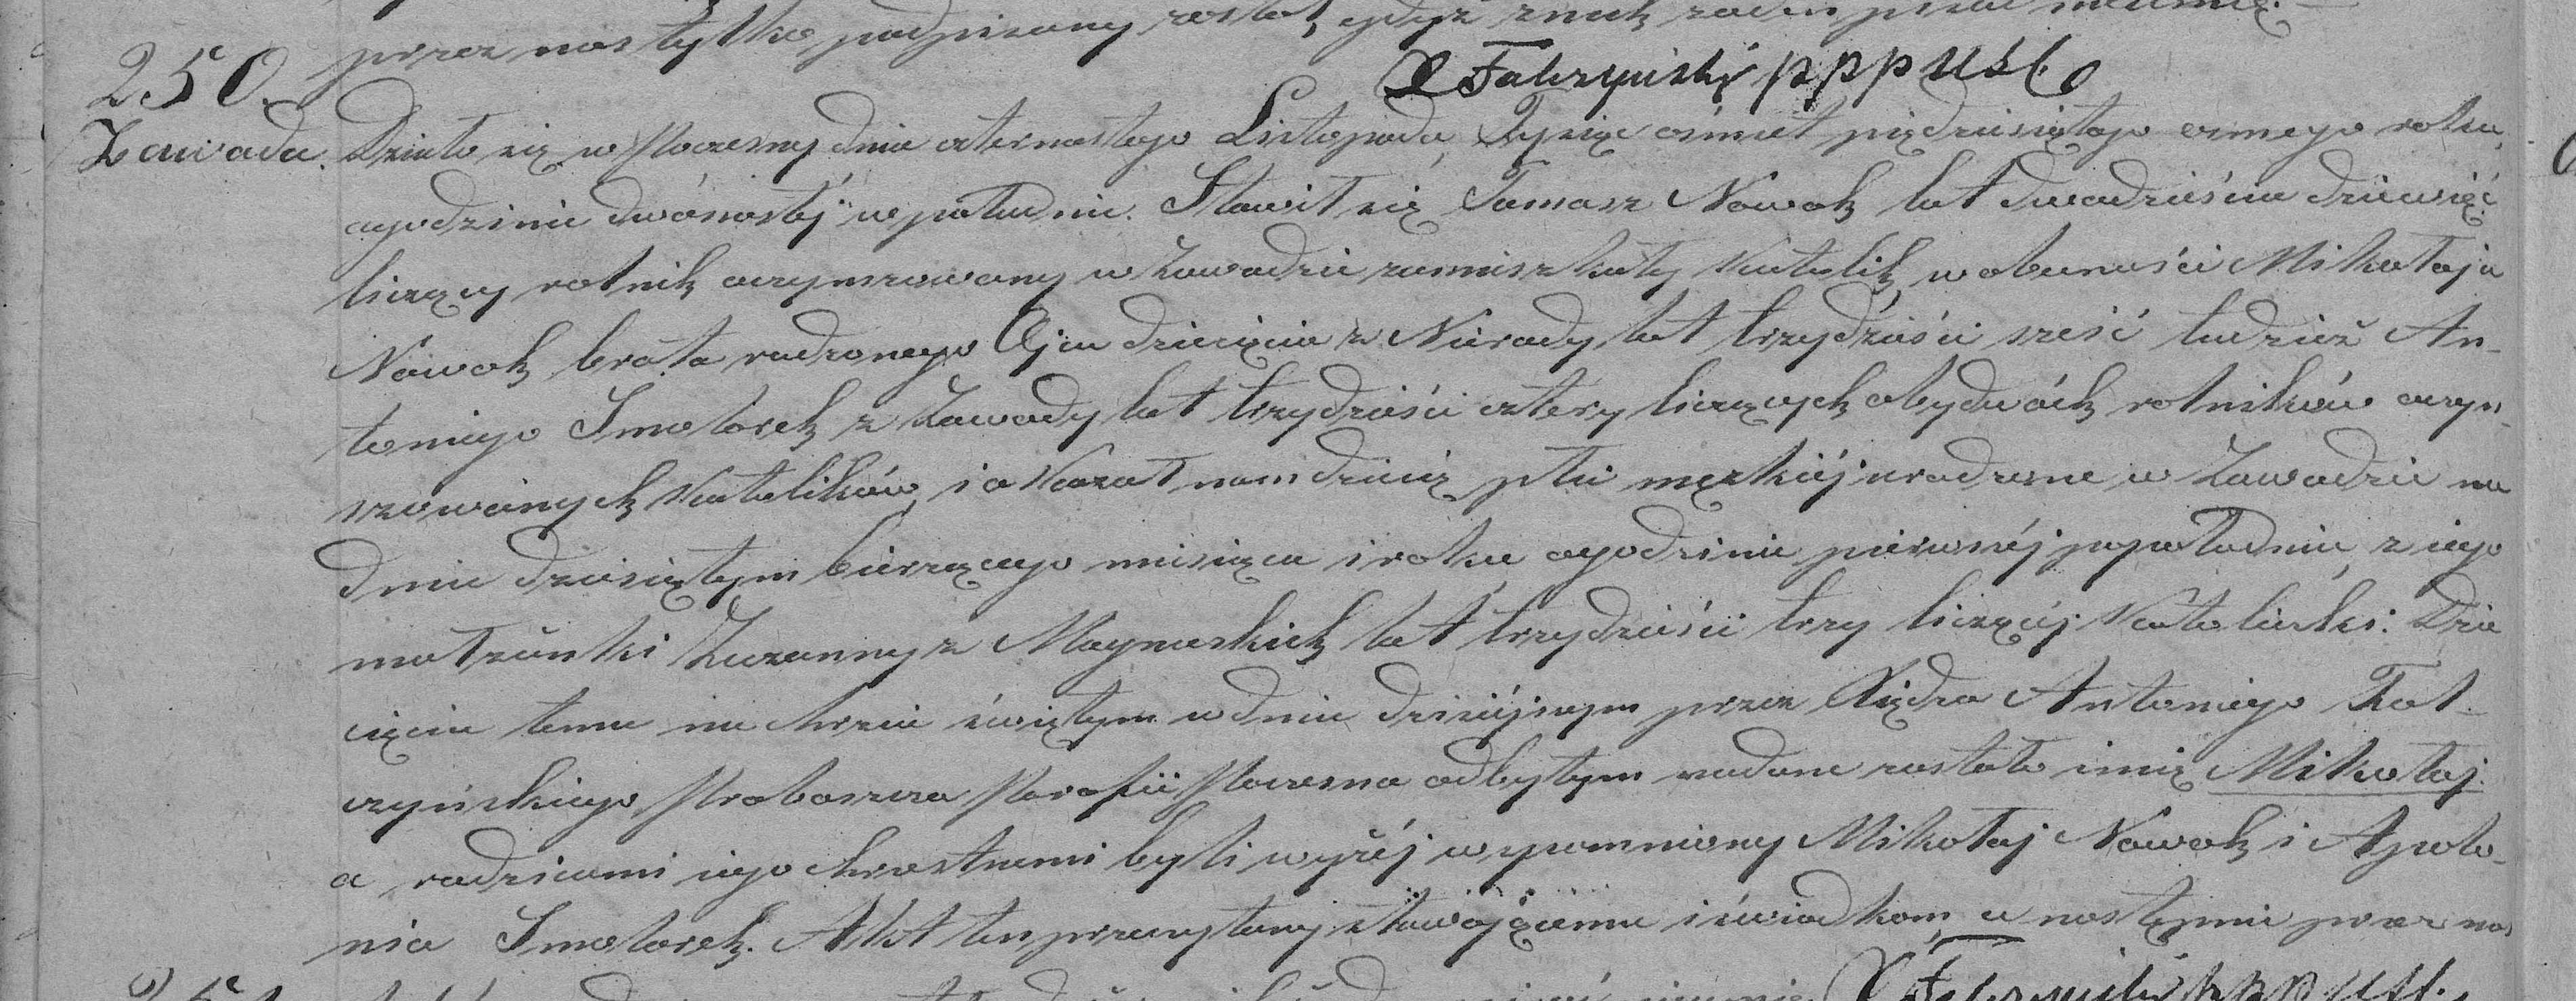 przez nas tylko podpisany został, gdyż z nich żaden pisać nieumie.
X Falczyński p p p U S C
250.
Zawada.
Działo się w Poczesny dnia czternastego Listopada, Tysiąc ośmset pięćdziesiątego osmego roku,
ogodzinie dwónastéj w południe. Stawił się Tomasz Nowak lat dwadzieścia dziewięć
liczący rolnik oczynszowany w Zawadzie zamieszkały Katolik, w obecności Mikołaja
Nowak brata rodzonego Ojca dziecięcia z Nierady lat trzydzieści sześć tudzież An-
toniego Smolarek z Zawady lat trzydzieści cztery liczących obydwóch rolników oczyn-
szowanych Katolików, i okazał nam dziecię płci męzkiéj urodzone w Zawadzie na
dniu dziesiątym bieżącego miesiąca i roku ogodzinie pierwszéj popołudniu, z iego
małżonki Zuzanny z lat trzydzieści trzy liczącéj Katoliczki. Dzie
cięciu temu na Chrzcie świętym w dniu dzisiéjszym przez Xiędza Antoniego Fał-
czyńskiego Proboszcza Parafii Poczesna odbytym nadane zostało imię Mikołaj.
a rodzicami iego chrzestnemi byli wyżéj wspomniony Mikołaj Nowak i Apolo-
nia Smolarek. Akt ten przeczytany stawaiącemu i świadkom, a następnie przez nas